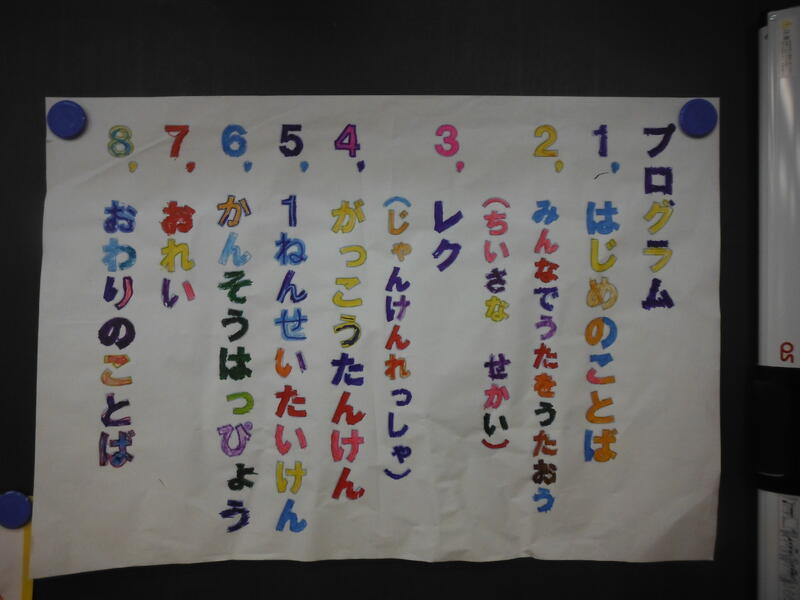 プログラム
1, はじめのことば
2, みんなでうたをうたおう
(ちいさな せかい)
3, レク
(じゃんけんれっしゃ)
4, がっこうたんけん
5, 1ねんせいたいけん
6, かんそうはっぴょう
7, おれい
8, おわりのことば